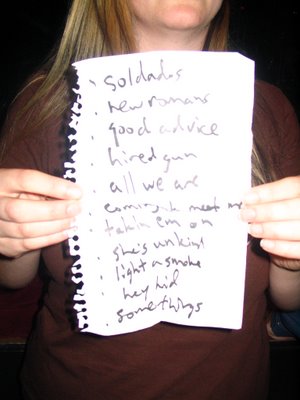 soldados
new romans
good advice
hired gun
all we are
coming to meet me
takin em on
she's unkings
light a smoke
hey kid
somethings